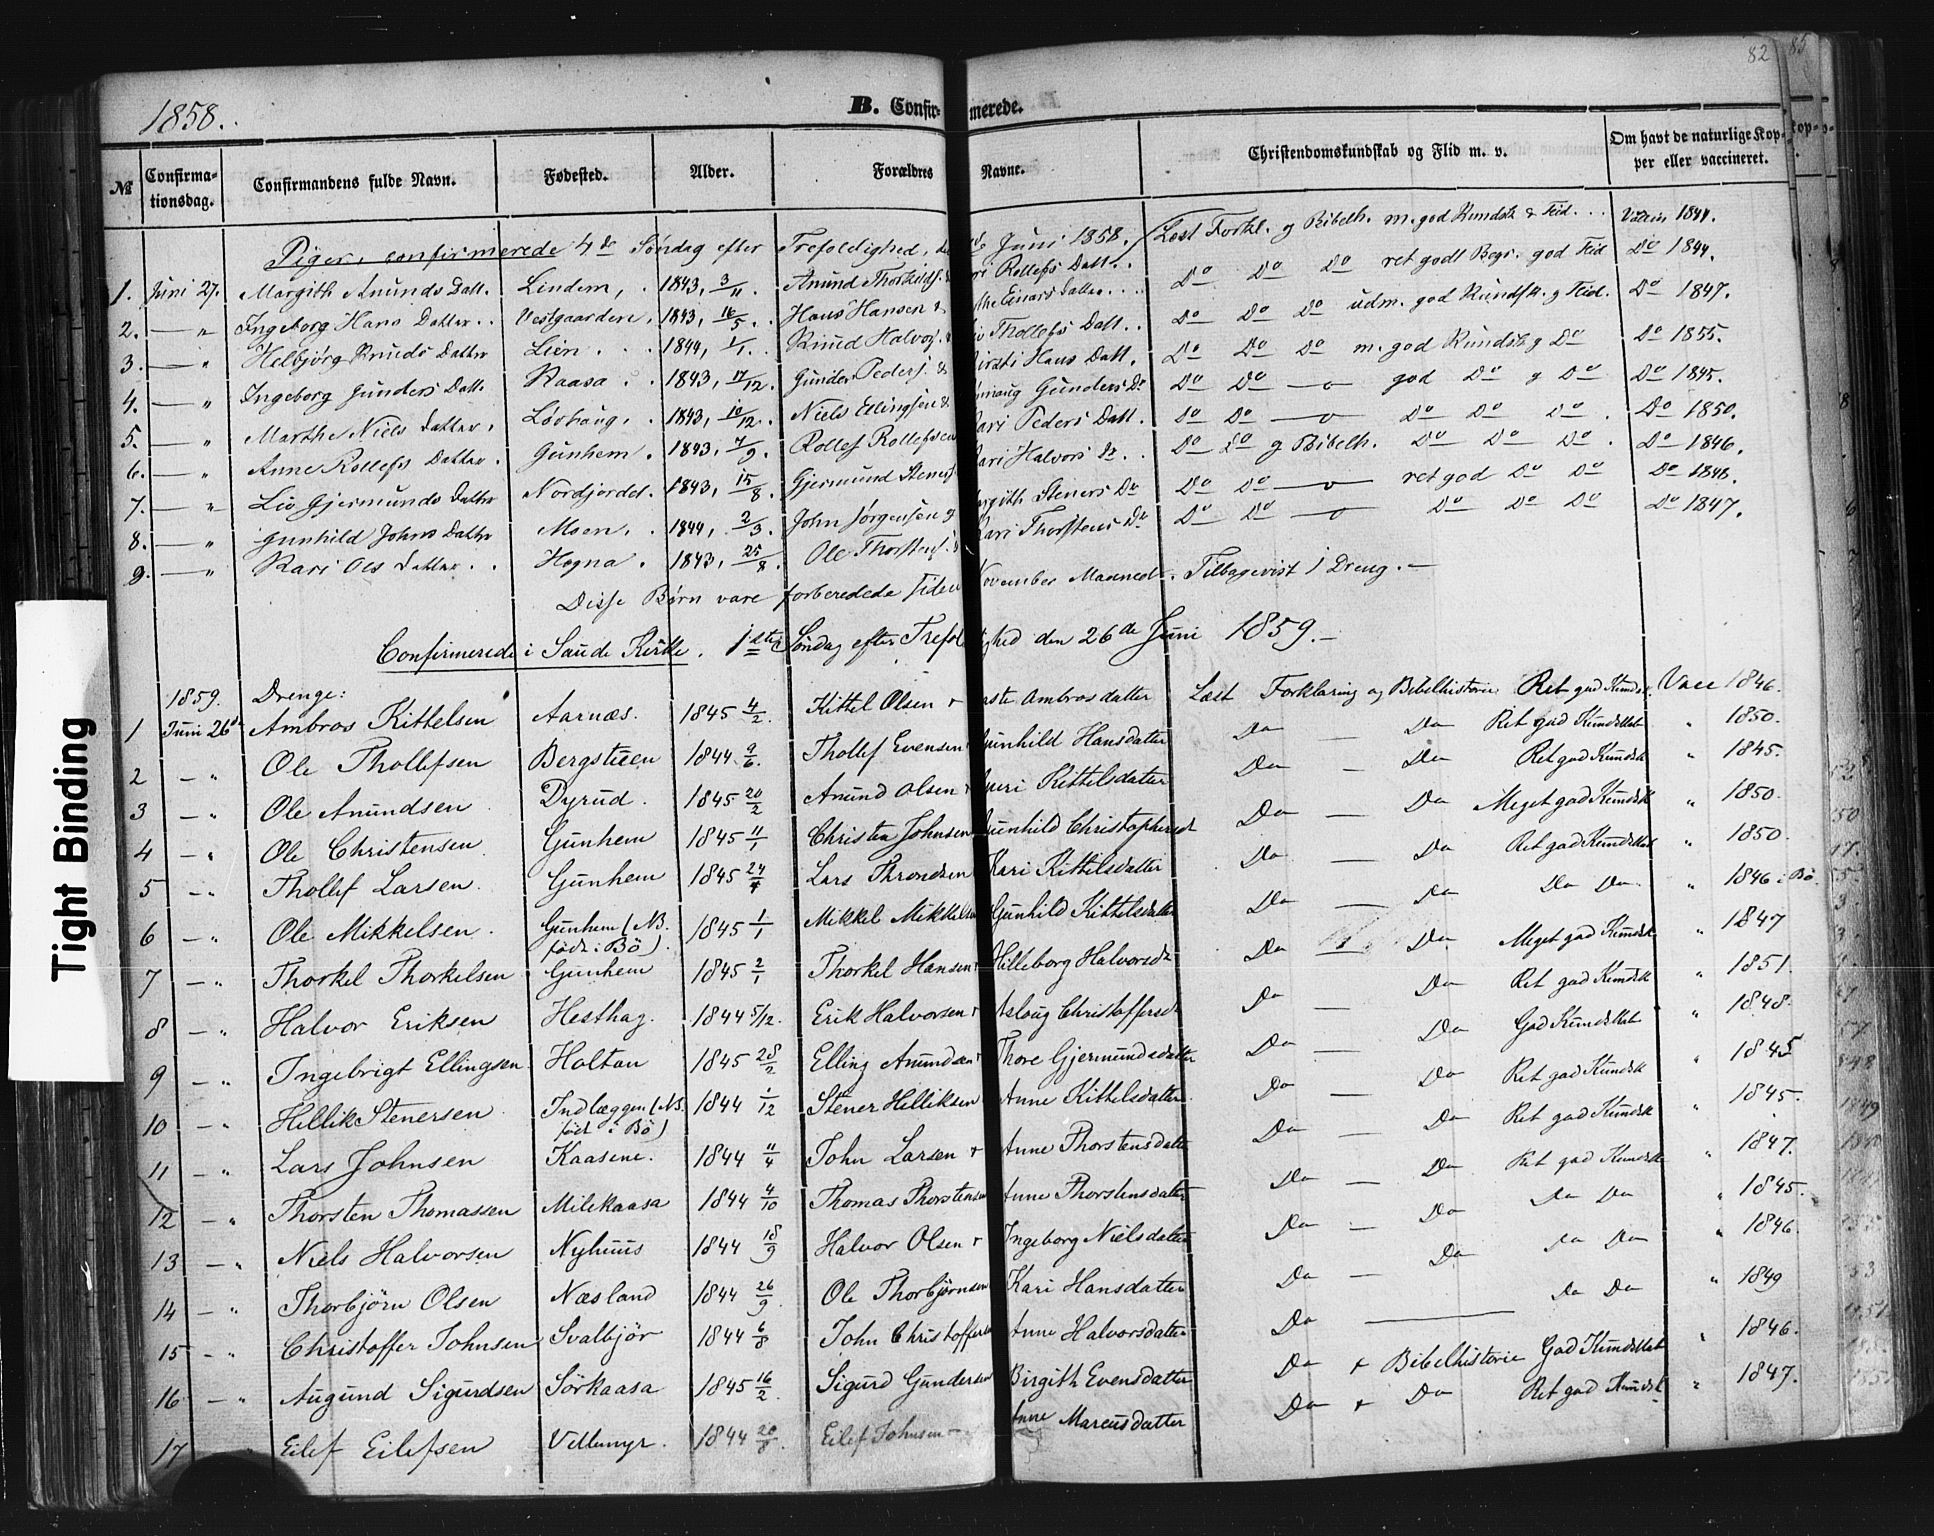 82 85
1858. B. Confirmerede.
№ Confirmationsdag. Confirmandens fulde Navn. Fødested. Alder. Forældres Navne. Christendomskundskab og Flid m. v. Om havt de naturlige Kopper eller vaccineret.
Piger, confirmerede 4de Søndag efter Trefoldighed, Juni 1858.
1. Juni 27. Margith Anunds Datt. Lindem, 1843, 3/11 Anund Thorkilds. & Rollefs Datt. Læst Forkl. og Bibelh. m. god Kundsk & Flid. Vaccin 1844.
2. — " Ingeborg Hans Datter. Vestgaarden, 1843, 16/5. Hans Hansen & Einars Datter Do Do Do ret godt Begr. god Flid Do 1844.
3. — " Helbjörg Knuds Datter Lien. 1844, 1/1. Knud Halvors. & Thollefs Datt. Do Do Do udm. god Kundsk. og Flid. Do 1847.
4. — " Ingeborg Gunders Datt. Kaasa. 1843, 17/12. Gunder Peders. & Kirsti Hans Datt. Do Do Do m. god Kundsk og Do Do 1855.
5. — " Marthe Niels Datter, Løvhaug, 1843, 10/12. Niels Ellingsen & Gunders Dr Do Do — o — god Do og Do Do 1845.
6. — " Anne Rollefs Datter. Gunhem. 1843, 7/9. Rollef Rollefsen Kari Peders Datt. Do Do — o — Do Do Do. Do 1850.
7. — " Liv Gjermunds Datter Nordjordet. 1843, 15/8. Gjermund Steners. Kari Halvors Dr. Do Do og Bibelh. Do Do Do. Do 1846.
8. — " Gunhild Johns Datter Moen. 1844, 2/3. John Jørgensen & Margith Steners Dr Do Do — o — ret god Do Do Do 1848.
9. — " Kari Ols Datter. Hogna. 1843, 25/8. Ole Thorstens. & Kari Thorstens Dr Do Do — o — Do Do Do Do 1847.
Disse Børn vare forberedede siden November Maaned. Tilbagevist 1 Dreng. —
Confirmerede i Saude Kirke. 1ste Søndag efter Trefoldighed den 26de Juni 1859. —
1859. Drenge:
1 Juni 26d Ambros Kittelsen Aarnæs. 1845 4/2. Kittel Olsen + Aaste Ambrosdatter Læst Forklaring og Bibelhistorie Ret god Kundsk. Vacc 1846.
2 — " Ole Thollefsen Bergstuen 1844 9/6. Thollef Evensen + Gunhild Hansdatter Do — Do Ret god Kundskab " 1850.
3 — " Ole Anundsen Dyrud. 1845 20/2 Anund Olsen + Guri Kittelsdatter Do — Do Ret god Kundsk " 1845.
4 — " Ole Christensen. Gunhem 1845 11/1 Christen Johnsen Gunhild Christophersdt Do — Do Meget god Kundsk " 1850.
5 — " Thollef Larsen. Gunhem 1845 24/4 Lars Throndsen Kari Kittilsdatter Do — Do Ret god Kundskab " 1850.
6 — " Ole Mikkelsen. Gunhem (NB. født i Bö). 1845 1/1 Mikkel Mikkelsen Gunhild Kittelsdatter Do — Do Do Do. " 1846 i Bö.
7 — " Thorkel Thorkelsen Gunhem 1845 2/1 Thorkel Hansen + Hilleborg Halvorsdt Do — Do Meget god Kundsk " 1847
8 — " Halvor Eriksen Hesthag. 1844 5/12. Erik Halvorsen + Aslaug Christoffersdt Do — Do Ret god Kundsk " 1851.
9 — " Ingebrigt Ellingsen Holtan 1845 28/2 Elling Anundsen + Thore Gjermundsdatter Do — Do God Kundskab " 1848.
10 — " Hellik Stenersen Indlæggen (NB. født i Bö) 1844 1/12 Stener Helliksen Anne Kittelsdatter. Do — Do Ret god Kundsk " 1845
11 — " Lars Johnsen Kaasene. 1844 11/4 John Larsen + Anne Thorstensdatter Do — Do Ret god Kundsk " 1845.
12 — " Thorsten Thomassen Milekaasa 1844 4/10 Thomas Thorstensen Anne Thorstensdatter Do — Do Ret god Kundsk " 1847.
13 — " Niels Halvorsen Nyhuus 1844 18/9 Halvor Olsen + Ingeborg Nielsdatter Do — Do Do Do " 1845.
14 — " Thorbjörn Olsen Næsland 1844 26/9. Ole Thorbjørnsen Kari Hansdatter Do — Do Do Do " 1846.
15 — " Christoffer Johnsen Svalbjör 1844 6/8 John Christoffersen Anne Halvorsdatter Do — Do Do " 1849
16 — " Augund Sigurdsen Sörkaasa 1845 16/2 Sigurd Gundersen Birgith Evensdatter Do + Bibelhistorie God Kundskab " 1846.
17 Eilef Eilefsen Vellemyr. 1844 20/8. Eilef Johnsen — Anne Marcusdatter Do + Do Ret god Kundsk " 1847.
Tight Binding